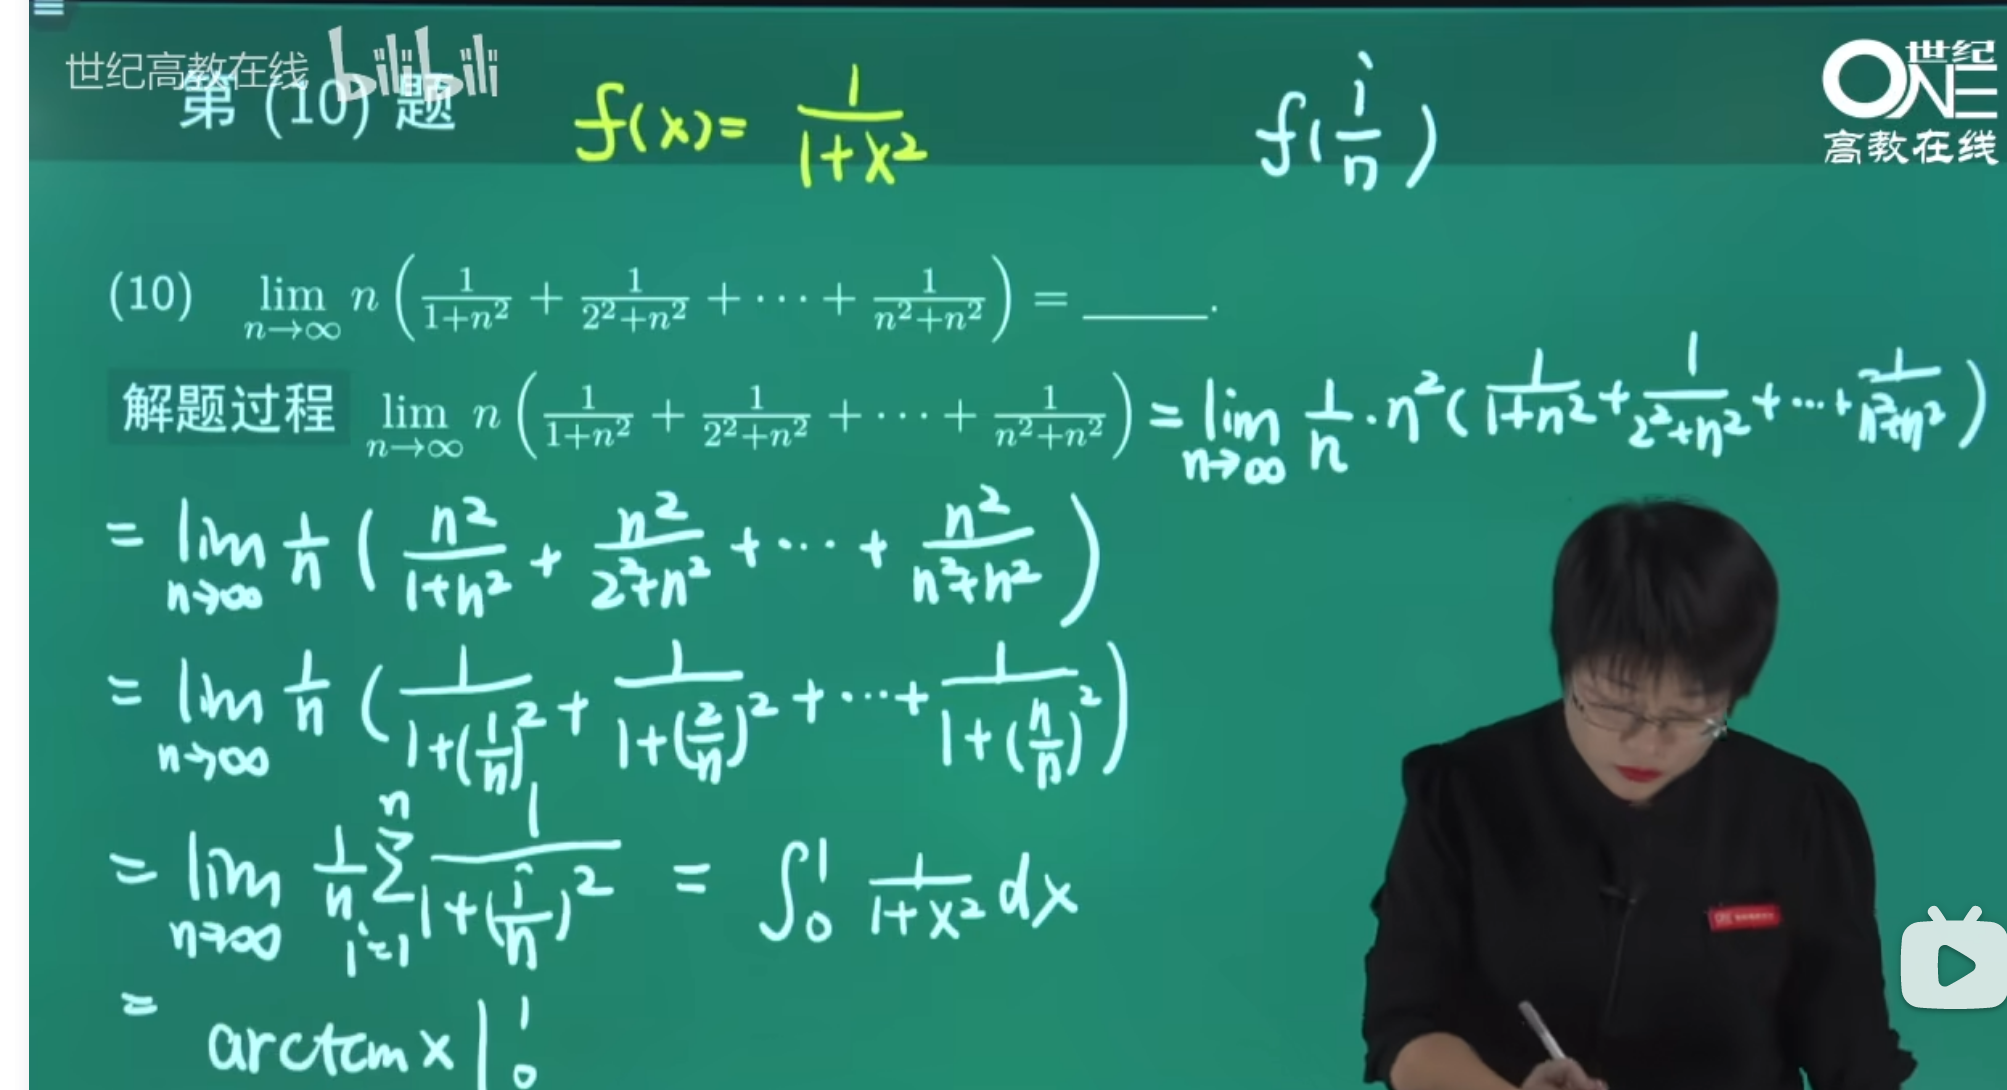 世纪高教在线 bilibili
第 (10) 题
f(x)= 1/(1+x²)
f(i/n)
世纪
ONE
高教在线
(10) lim n→∞ n(1/(1+n²) + 1/(2²+n²) + ··· + 1/(n²+n²)) = ______.
解题过程 lim n→∞ n(1/(1+n²) + 1/(2²+n²) + ··· + 1/(n²+n²)) = lim n→∞ 1/n · n²(1/(1+n²) + 1/(2²+n²) + ··· + 1/(n²+n²))
= lim n→∞ 1/n (n²/(1+n²) + n²/(2²+n²) + ··· + n²/(n²+n²))
= lim n→∞ 1/n (1/(1+(1/n)²) + 1/(1+(2/n)²) + ··· + 1/(1+(n/n)²))
= lim n→∞ 1/n Σ_{i=1}^{n} 1/(1+(i/n)²) = ∫₀¹ 1/(1+x²) dx
= arctan x |₀¹